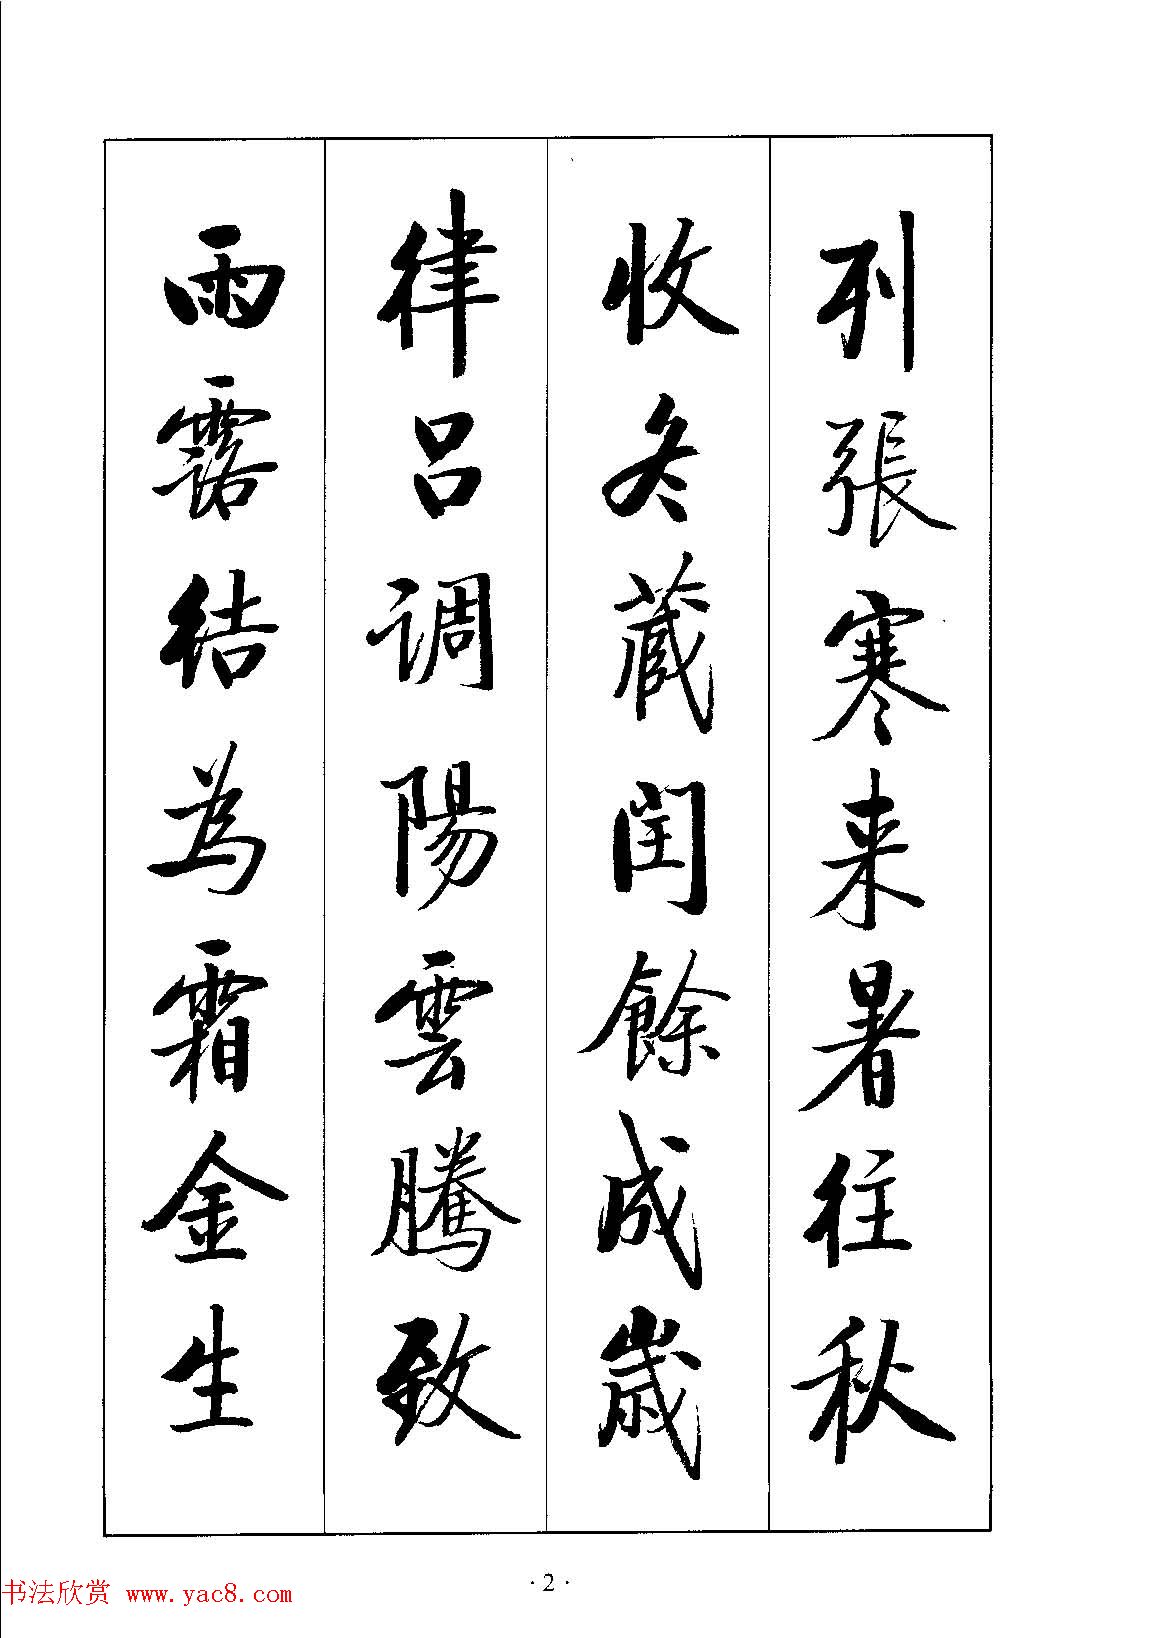 列張寒来暑往秋
收冬蔵閏餘成歲
律吕调陽雲騰致
雨露结為霜金生
·2·
书法欣赏 www.yac8.com